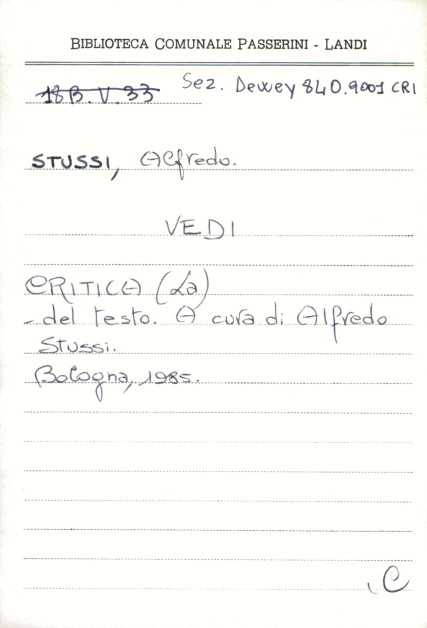 BIBLIOTECA COMUNALE PASSERINI - LANDI
18 B. V. 33 Sez. Dewey 840.9001 CRI
STUSSI, Alfredo.
VEDI
CRITICA (La)
- del testo. A cura di Alfredo
Stussi.
Bologna, 1985.
C